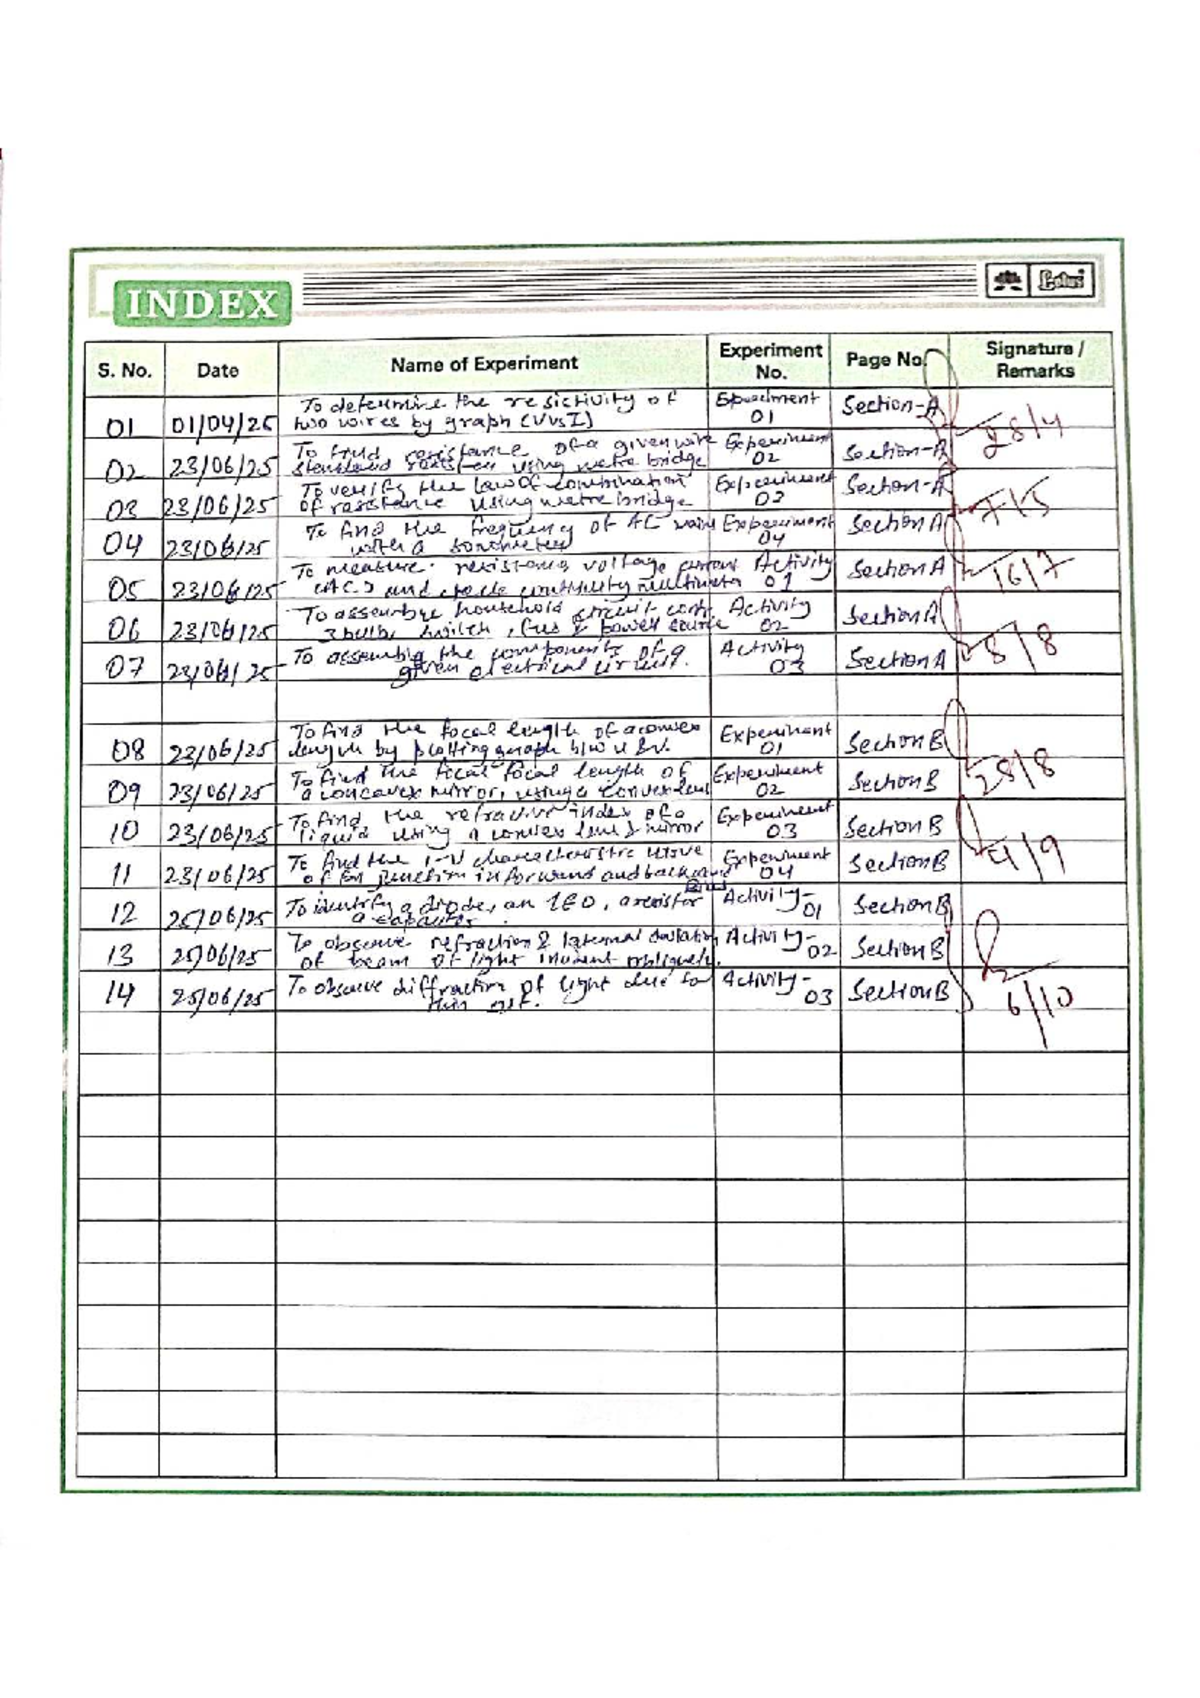 INDEX
Lotus
S. No. Date Name of Experiment Experiment No. Page No. Signature / Remarks
01 01/04/25 To determine the resictivity of two wires by graph (V vs I) Experiment 01 Section-A 28/4
02 23/06/25 To find resistance of a given wire standard using metre bridge Experiment 02 Section-A
03 23/06/25 To verify the law of combination of resistance using metre bridge Experiment 03 Section-A
04 23/06/25 To find the frequency of AC with a Experiment 04 Section A
05 23/06/25 To measure resistance voltage current (AC) and continuity multimeter Activity 01 Section A 16/7
06 23/06/25 To household circuit 3 bulb, switch, & power Activity 02 Section A
07 23/06/25 To assemble the components of a given electrical circuit. Activity 03 Section A 8/8
08 23/06/25 To find the focal length of a convex by plotting graph b/w u & v. Experiment 01 Section B
09 23/06/25 To find the focal length of a mirror, using a convex lens Experiment 02 Section B 28/8
10 23/06/25 To find the refractive index of a liquid using a convex lens & mirror Experiment 03 Section B
11 23/06/25 To find the I-V of junction in forward and Experiment 04 Section B 4/9
12 25/06/25 To identify a diode, an LED, a resistor a capacitor. Activity-01 Section B
13 25/06/25 To observe refraction & of beam of light obliquely. Activity-02 Section B
14 25/06/25 To observe diffraction of light due to thin Activity-03 Section B 6/10